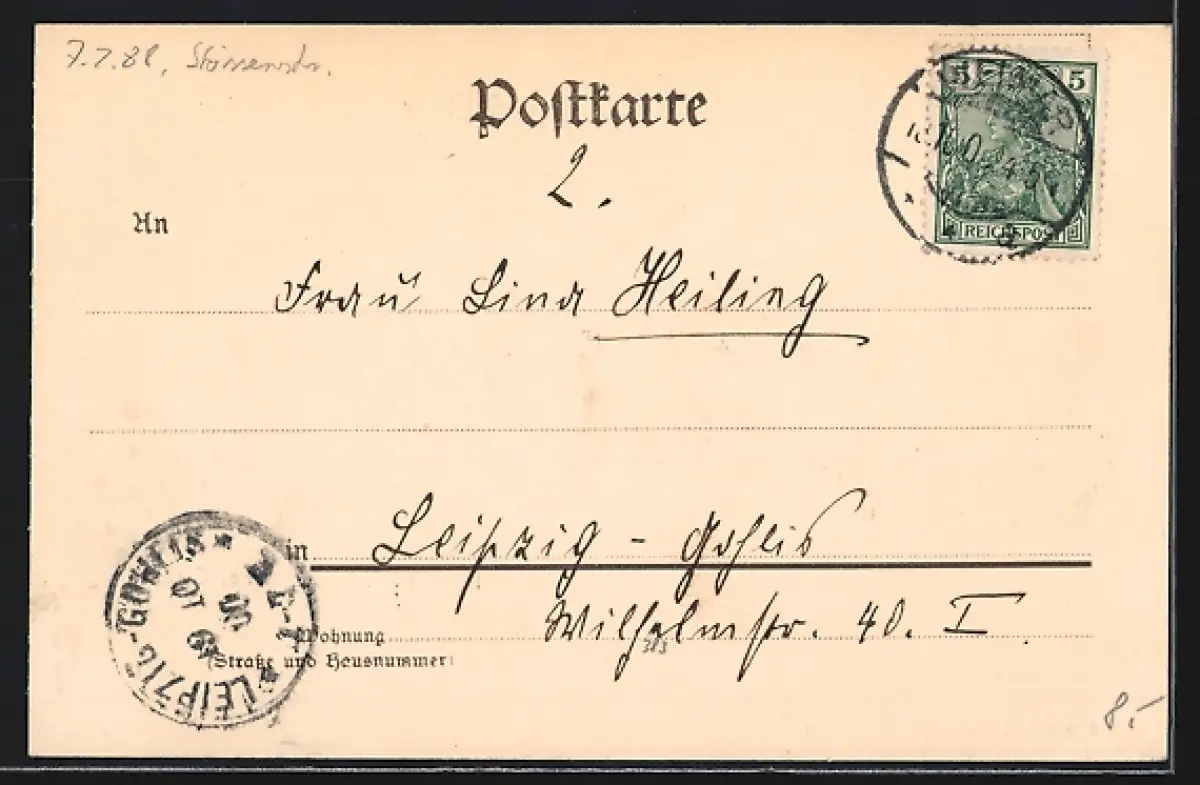 7.7.81,
Postkarte
5 5
REICHSPOST
2.
An
Frau Lina Heilieg
in Leipzig - Gohlis
Wilhelmstr. 40. I
Wohnung
(Straße und Hausnummer)
383
LEIPZIG-GOHLIS
19 10
00
8.-